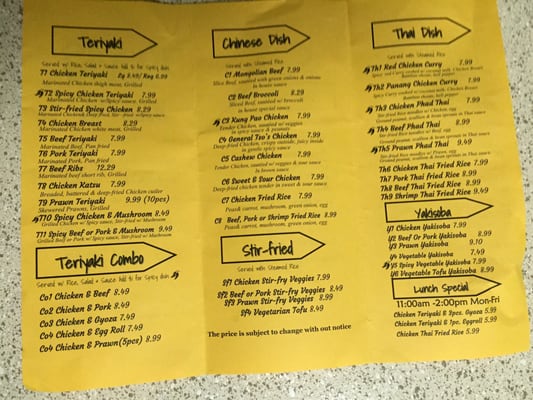 Teriyaki
Served w/ Rice, Salad + Sauce Add $1 for Spicy dish
T1 Chicken Teriyaki Lg 8.49/ Reg 6.99
Marinated Chicken thigh meat, Grilled
T2 Spicy Chicken Teriyaki 7.99
Marinated Chicken w/Spicy sauce, Grilled
T3 Stir-fried Spicy Chicken 8.29
T4 Chicken Breast 8.29
Marinated Chicken white meat, Grilled
T5 Beef Teriyaki 7.99
Marinated Beef, Pan fried
T6 Pork Teriyaki 7.99
Marinated Pork, Pan fried
T7 Beef Ribs 12.29
Marinated beef short rib, Grilled
T8 Chicken Katsu 7.99
Breaded, battered & deep-fried Chicken cutlet
T9 Prawn Teriyaki 9.99 (10pcs)
Skewered Prawn, Grilled
T10 Spicy Chicken & Mushroom 8.49
Grilled Chicken w/ Spicy sauce, Stir-fried w/ Mushroom
T11 Spicy Beef or Pork & Mushroom 9.49
Grilled Beef or Pork w/ Spicy sauce, Stir-fried w/ Mushroom
Teriyaki Combo
Served w/ Rice, Salad + Sauce Add $1 for Spicy dish
Co1 Chicken & Beef 8.49
Co2 Chicken & Pork 8.49
Co3 Chicken & Gyoza 7.49
Co4 Chicken & Egg Roll 7.49
Co4 Chicken & Prawn(5pcs) 8.99
Chinese Dish
Served with Steamed Rice
C1 Mongolian Beef 7.99
Slice Beef, sautéed with green onions & onions
in house sauce
C2 Beef Broccoli 8.29
Sliced Beef, sautéed w/ broccoli
in house special sauce
C3 Kung Pao Chicken 7.99
Tender Chicken, sautéed w/ veggies
in spicy sauce & peanuts
C4 General Tso's Chicken 7.99
Deep fried Chicken, crispy outside, juicy inside
in gentle spicy sauce
C5 Cashew Chicken 7.99
Tender Chicken, sautéed w/ veggies & tour sauce
in house sauce
C6 Sweet & Sour Chicken 7.99
Deep-fried chicken tender in sweet & tour sauce
C7 Chicken Fried Rice 7.99
Peas& carrot, mushroom, green onion, egg
C8 Beef, Pork or Shrimp Fried Rice 8.99
Peas& carrot, mushroom, green onion, egg
Stir-fried
Served with Steamed Rice
Sf1 Chicken Stir-fry Veggies 7.99
Sf2 Beef or Pork Stir-fry Veggies 8.49
Sf3 Prawn Stir-fry Veggies 8.99
Sf4 Vegetarian Tofu 8.49
The price is subject to change with out notice
Thai Dish
Served with Steamed Rice
Th1 Red Chicken Curry 7.99
Spicy red Curry cooked w/ coconut milk, Chicken Breast,
Th2 Panang Chicken Curry 7.99
Th3 Chicken Phad Thai 7.99
Stir-fried Rice noodles w/ Chicken, egg
Ground peanut, scallion & bean sprouts in Thai sauce
Th4 Beef Phad Thai 8.99
Stir-fried Rice noodles w/ Beef, egg
Ground peanut, scallion & bean sprouts in Thai sauce
Th5 Prawn Phad Thai 9.49
Stir-fried Rice noodles w/ Prawn, egg
Ground peanut, scallion & bean sprouts in Thai sauce
Th6 Chicken Thai Fried Rice 7.99
Th7 Pork Thai Fried Rice 8.99
Th8 Beef Thai Fried Rice 8.99
Th9 Shrimp Thai Fried Rice 9.49
Yakisoba
Y1 Chicken Yakisoba 7.99
Y2 Beef Or Pork Yakisoba 8.99
Y3 Prawn Yakisoba 9.10
Y4 Vegetable Yakisoba 7.49
Y5 Spicy Vegetable Yakisoba 7.99
Y6 Vegetable Tofu Yakisoba 8.99
Lunch Special
11:00am -2:00pm Mon-Fri
Chicken Teriyaki & 3pcs. Gyoza 5.99
Chicken Teriyaki & 1pc. Eggroll 5.99
Chicken Thai Fried Rice 5.99